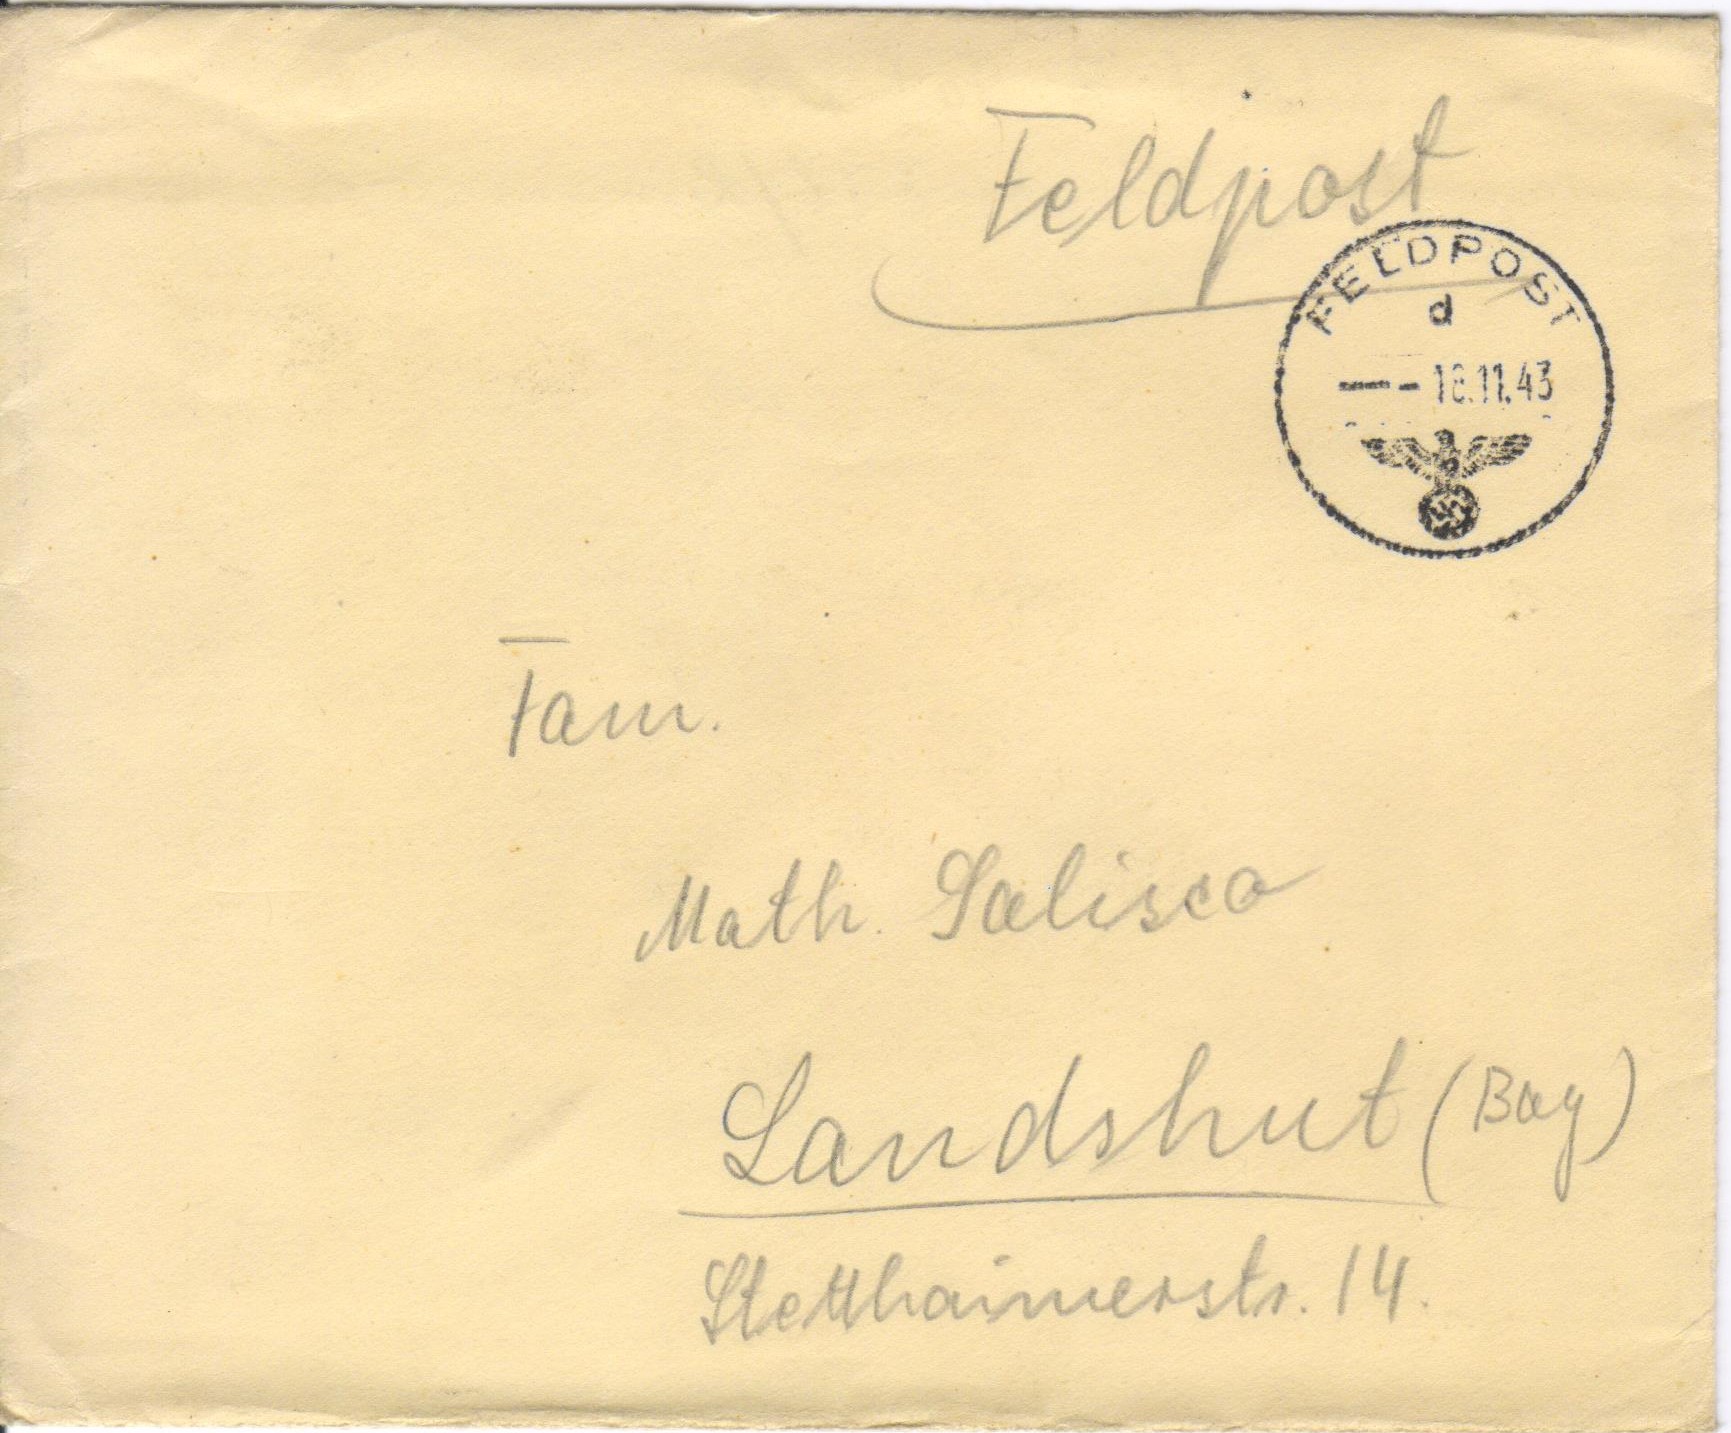 Feldpost
FELDPOST
d
— - 18.11.43
Fam.
Math. Salisco
Landshut (Bay)
Stetthaimerstr. 14.